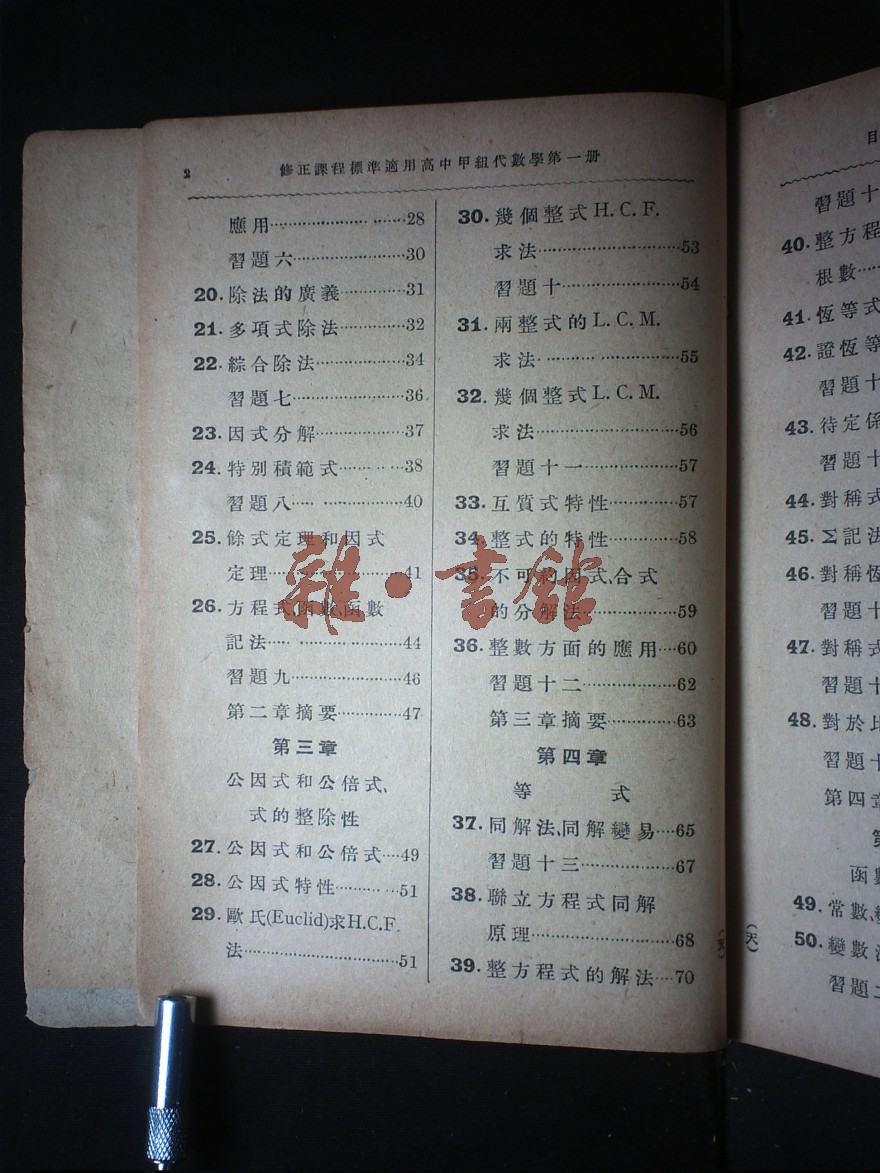 2
修正課程標準適用高中甲組代數學第一册
應用……………………28
習題六…………………30
20.除法的廣義…………31
21.多項式除法…………32
22.綜合除法……………34
習題七…………………36
23.因式分解……………37
24.特別積範式…………38
習題八…………………40
25.餘式定理和因式
定理……………………41
26.方程式,函數,函數
記法……………………44
習題九…………………46
第二章摘要…………47
第三章
公因式和公倍式,
式的整除性
27.公因式和公倍式…49
28.公因式特性…………51
29.歐氏(Euclid)求H.C.F.
法………………………51
30.幾個整式H.C.F.
求法……………………53
習題十…………………54
31.兩整式的L.C.M.
求法……………………55
32.幾個整式L.C.M.
求法……………………56
習題十一………………57
33.互質式特性…………57
34.整式的特性…………58
35.不可約因式、合式
的分解法………………59
36.整數方面的應用…60
習題十二………………62
第三章摘要…………63
第四章
等式
37.同解法、同解變易…65
習題十三………………67
38.聯立方程式同解
原理……………………68
39.整方程式的解法…70
雜·書館
目
習題十
40.整方程
根數……
41.恆等式
42.證恆等
習題十
43.待定係
習題十
44.對稱式
45.Σ記法
46.對稱恆
習題十
47.對稱式
習題十
48.對於比
習題十
第四章
第
函數
49.常數、
50.變數
習題二